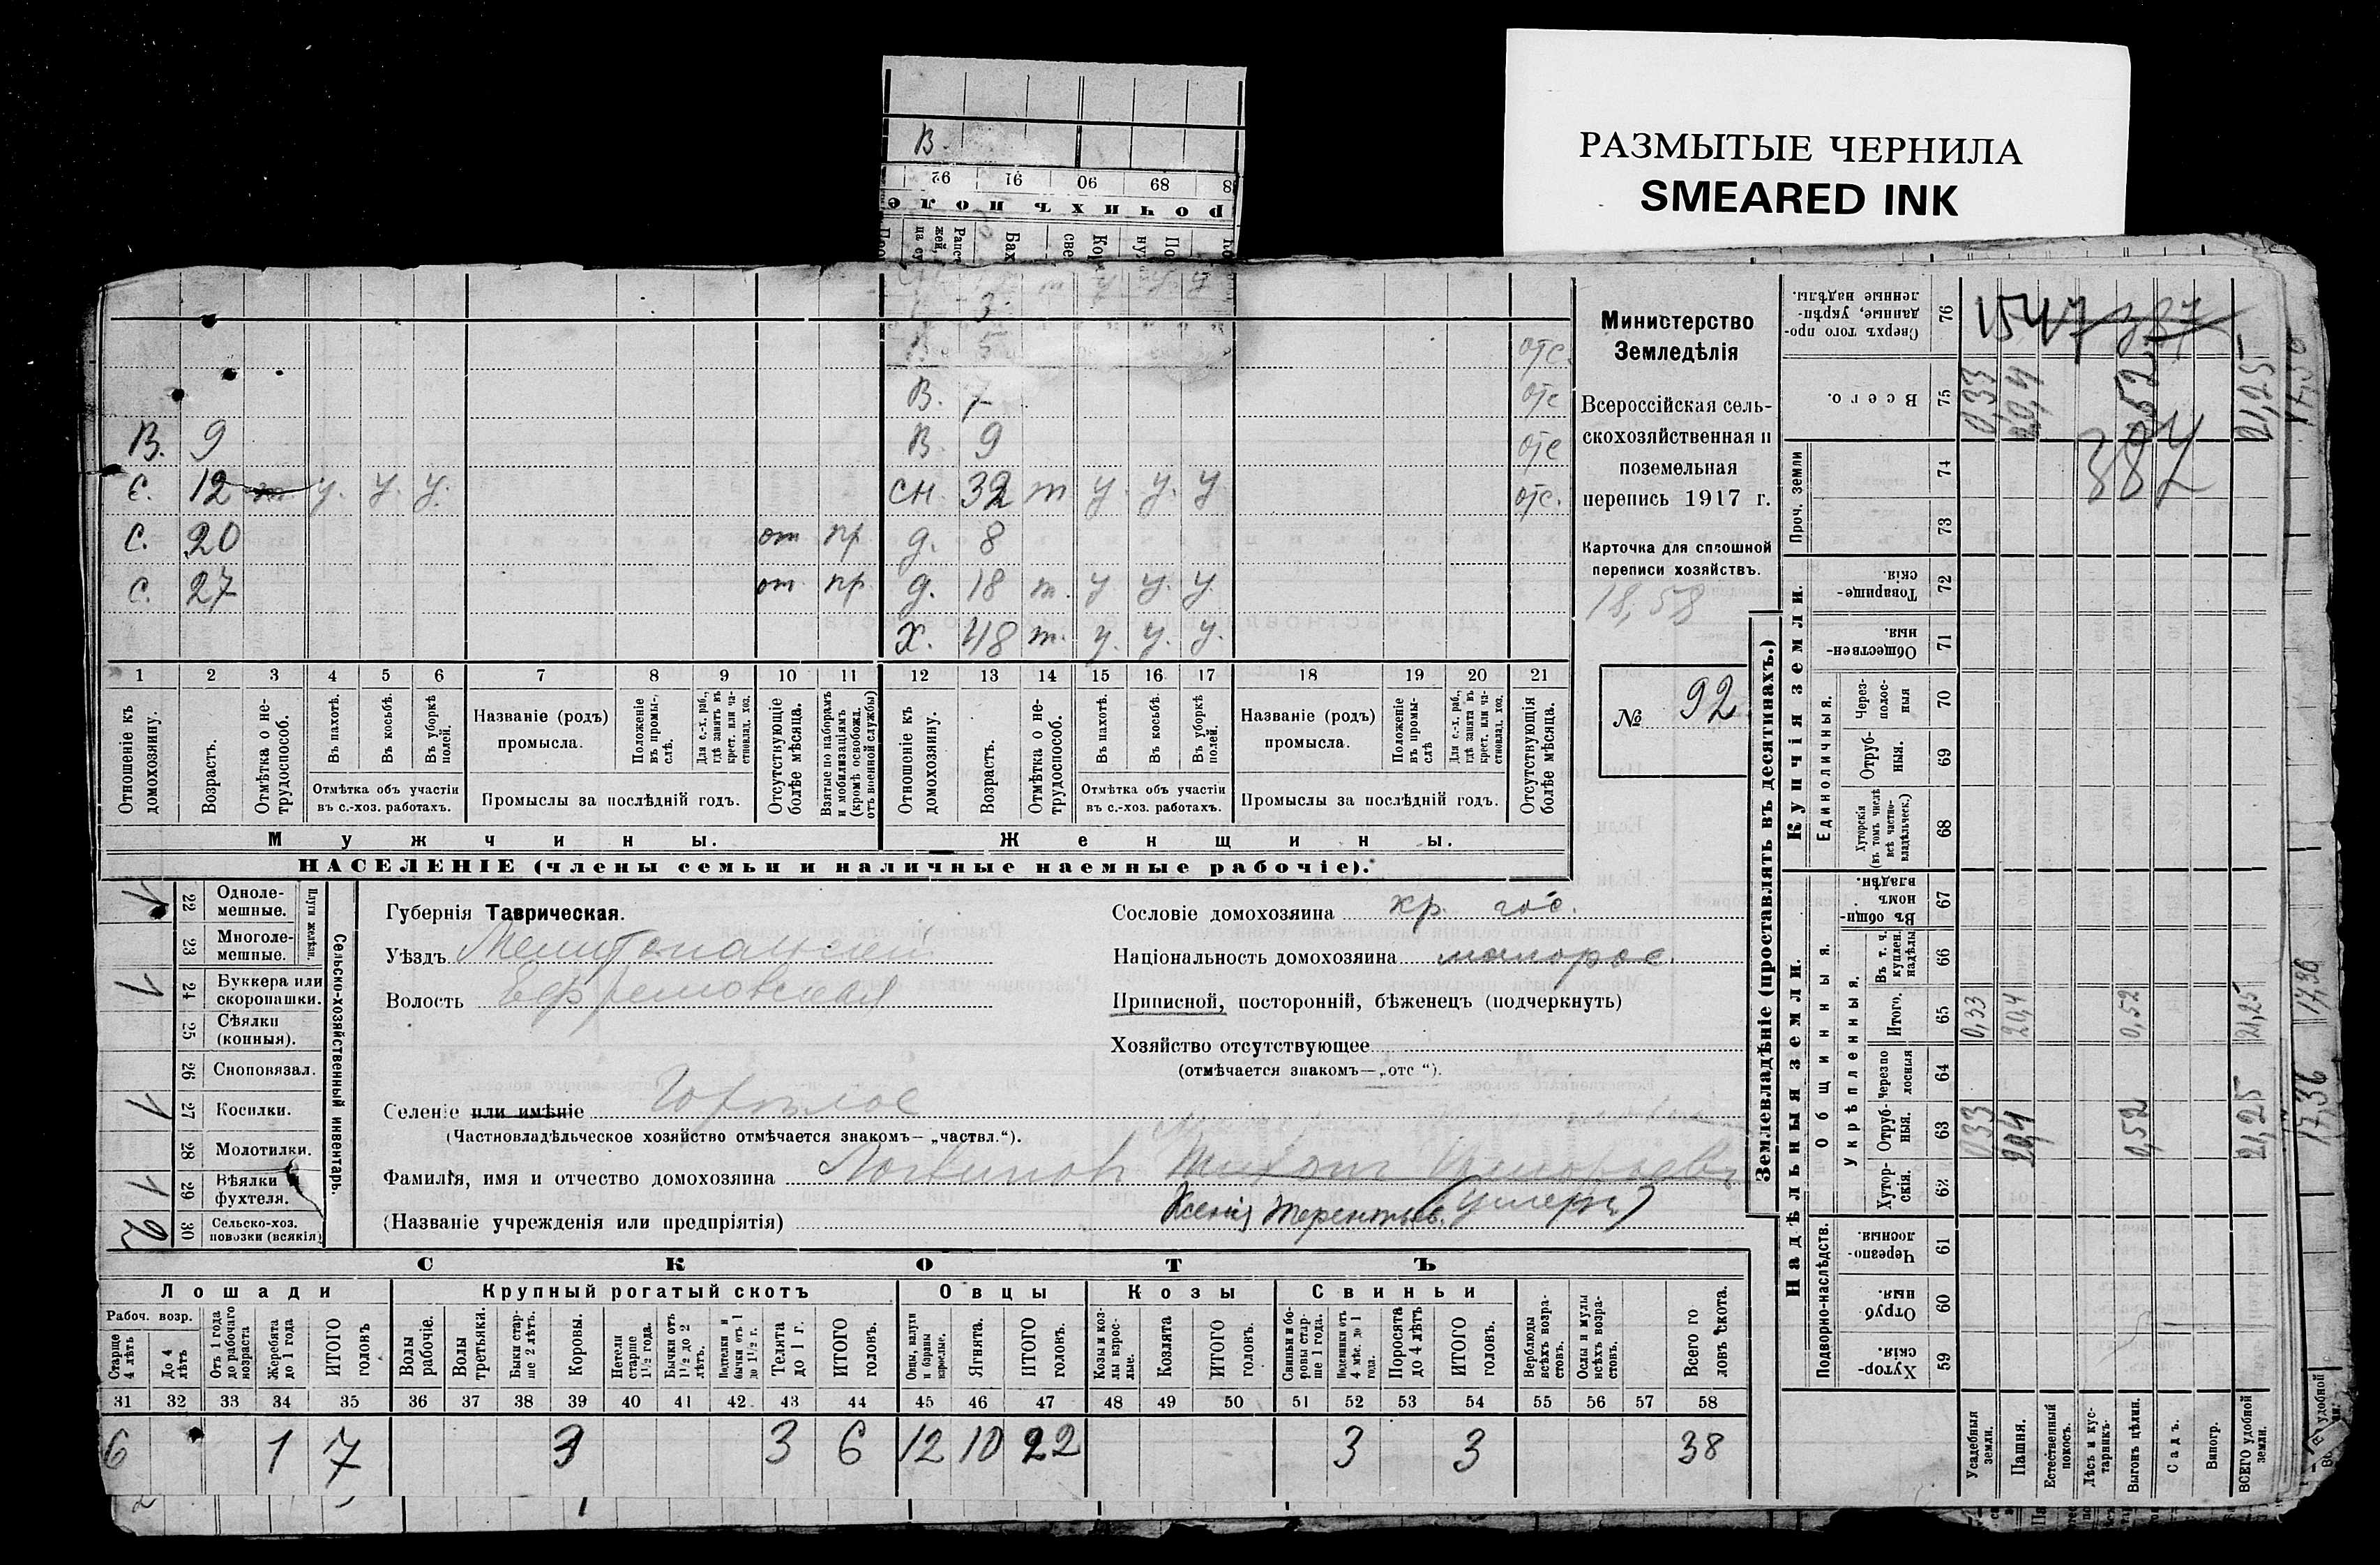 РАЗМЫТЫЕ ЧЕРНИЛА
SMEARED INK
В.
92 91 90 89
рочихъ поле
Министерство
Земледѣлія
Всероссійская сель-
скохозяйственная и
поземельная
перепись 1917 г.
Карточка для сплошной
переписи хозяйствъ.
18,58
№ 92
3
В. 5 отс.
В. 7 отс
В. 9 В. 9 отс
с. 12 т у. у. у. сн. 32 т у. у. у отс.
с. 20 от пр д. 8
с. 27 от пр. д. 18 т. у у. у.
х. 48 т. у. у. у.
1 2 3 4 5 6 7 8 9 10 11 12 13 14 15 16 17 18 19 20 21
Отношеніе къ домохозяину.
Возрастъ.
Отмѣтка о не-трудоспособ.
Въ пахотѣ.
Въ косьбѣ.
Въ уборкѣ полей.
Отмѣтка объ участіи
въ с.-хоз. работахъ.
Названіе (родъ)
промысла.
Положеніе въ промы-слѣ.
Для с.-х. раб., гдѣ занятъ въ крест. или ча-стновлад. хоз.
Промыслы за послѣдній годъ.
Отсутствующіе болѣе мѣсяца.
Взятые по наборамъ и мобилизаціямъ (кромѣ освобожд. отъ военной службы)
Отношеніе къ домохозяину.
Возрастъ.
Отмѣтка о не-трудоспособ.
Въ пахотѣ.
Въ косьбѣ.
Въ уборкѣ полей.
Отмѣтка объ участіи
въ с.-хоз. работахъ.
Названіе (родъ)
промысла.
Положеніе въ промы-слѣ
Для с.-х. раб., гдѣ занята въ крест. или ча-стновлад. хоз.
Промыслы за послѣдній годъ.
Отсутствующія болѣе мѣсяца.
Мужчины. Женщины.
НАСЕЛЕНІЕ (члены семьи и наличные наемные рабочіе).
Сельско-хозяйственный инвентарь.
Плуги желѣзн.
22 Одноле-мешные. 1
23 Многоле-мешные.
24 Буккера или скоропашки. 1
25 Сѣялки (конныя).
26 Сноповязал.
27 Косилки. 1
28 Молотилки.
29 Вѣялки фухтеля. 1
30 Сельско-хоз. повозки (всякія) 2
Губернія Таврическая.
Уѣздъ Мелитопольскій
Волость Ефремовская
Селеніе или имѣніе Горѣлое
(Частновладѣльческое хозяйство отмѣчается знакомъ— „частвл.“).
Фамилія, имя и отчество домохозяина Логвинов Тихон
Ксенія Терентьев. (умеръ)
(Названіе учрежденія или предпріятія)
Сословіе домохозяина кр. гос.
Національность домохозяина малорос.
Приписной, посторонній, бѣженецъ (подчеркнуть)
Хозяйство отсутствующее
(отмѣчается знакомъ—„отс“).
СКОТЪ
Лошади Крупный рогатый скотъ Овцы Козы Свиньи
Рабоч. возр.
Старше 4 лѣтъ
До 4 лѣтъ
Отъ 1 года до рабочаго возраста
Жеребята до 1 года
ИТОГО головъ
Волы рабочіе.
Волы третьяки.
Быки стар-ше 2 лѣтъ.
Коровы.
Нетели старше 1½ года.
Бычки отъ 1½ до 2 лѣтъ.
Подтелки и бычки отъ 1 до 1½ г.
Телята до 1 г.
ИТОГО головъ.
Овцы, валухи и бараны взрослые.
Ягнята.
ИТОГО головъ.
Козы и коз-лы взрос-лые.
Козлята
ИТОГО головъ.
Свиньи и бо-ровы стар-ше 1 года.
Подсвинки отъ 4 мѣс. до 1 года.
Поросята до 4 лѣтъ
ИТОГО головъ.
Верблюды всѣхъ возра-стовъ.
Ослы и мулы всѣхъ возра-стовъ.
Всего го ловъ скота.
31 32 33 34 35 36 37 38 39 40 41 42 43 44 45 46 47 48 49 50 51 52 53 54 55 56 57 58
6 1 7 3 3 6 12 10 22 3 3 38
Землевладѣніе (проставлять въ десятинахъ.)
Надѣльныя земли. Купчія земли.
Подворно-наслѣдств. Общинныя. Укрѣпленныя. Единоличныя. Проч. земли
Сверхъ того про-данные, укрѣп-ленные надѣлы. 76
Всего. 75
74
73
Товарище-скія. 72
Обществен-ныя. 71
Через-полос-ныя 70
Отруб-ныя. 69
Хуторскія (въ томъ числѣ всѣ частно-владѣльческ.) 68
Въ общи-номъ владѣн. 67
Въ т. ч. куплен. надѣлы 66
Итого. 65
Черезпо лосныя 64
Отруб-ныя. 63
Хутор-скія. 62
Черезпо-лосныя. 61
Отруб ныя. 60
Хутор-скія. 59
Усадебныя земли.
Пашня.
Естественный покосъ.
Лѣсъ и кус-тарникъ.
Выгонъ цѣлин.
Садъ.
Виногр.
ВСЕГО удобной земли.
1547 387
0,33 20,4 0,52 21,25
382
0,33 20,4 0,52 21,25 17,36
0,33 20,4 0,52 21,25 17,36